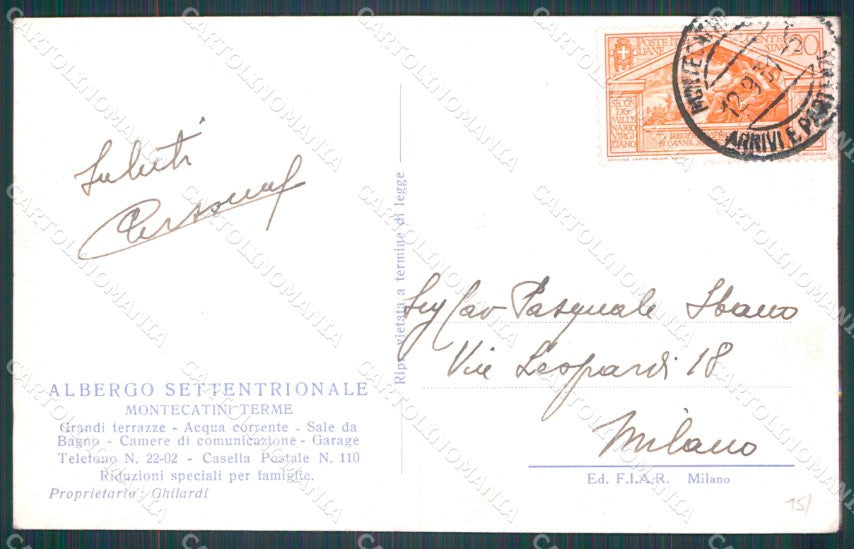 Saluti
ALBERGO SETTENTRIONALE
MONTECATINI TERME
Grandi terrazze - Acqua corrente - Sale da
Bagno - Camere di comunicazione - Garage
Telefono N. 22-02 - Casella Postale N. 110
Riduzioni speciali per famiglie.
Proprietario: Ghilardi
Ripr. vietata a termine di legge
20
12.9.31
ARRIVI E PARTENZE
Pasquale
Vie Leopardi 18
Milano
Ed. F.I.A.R. Milano
15/
CARTOLINOMANIA